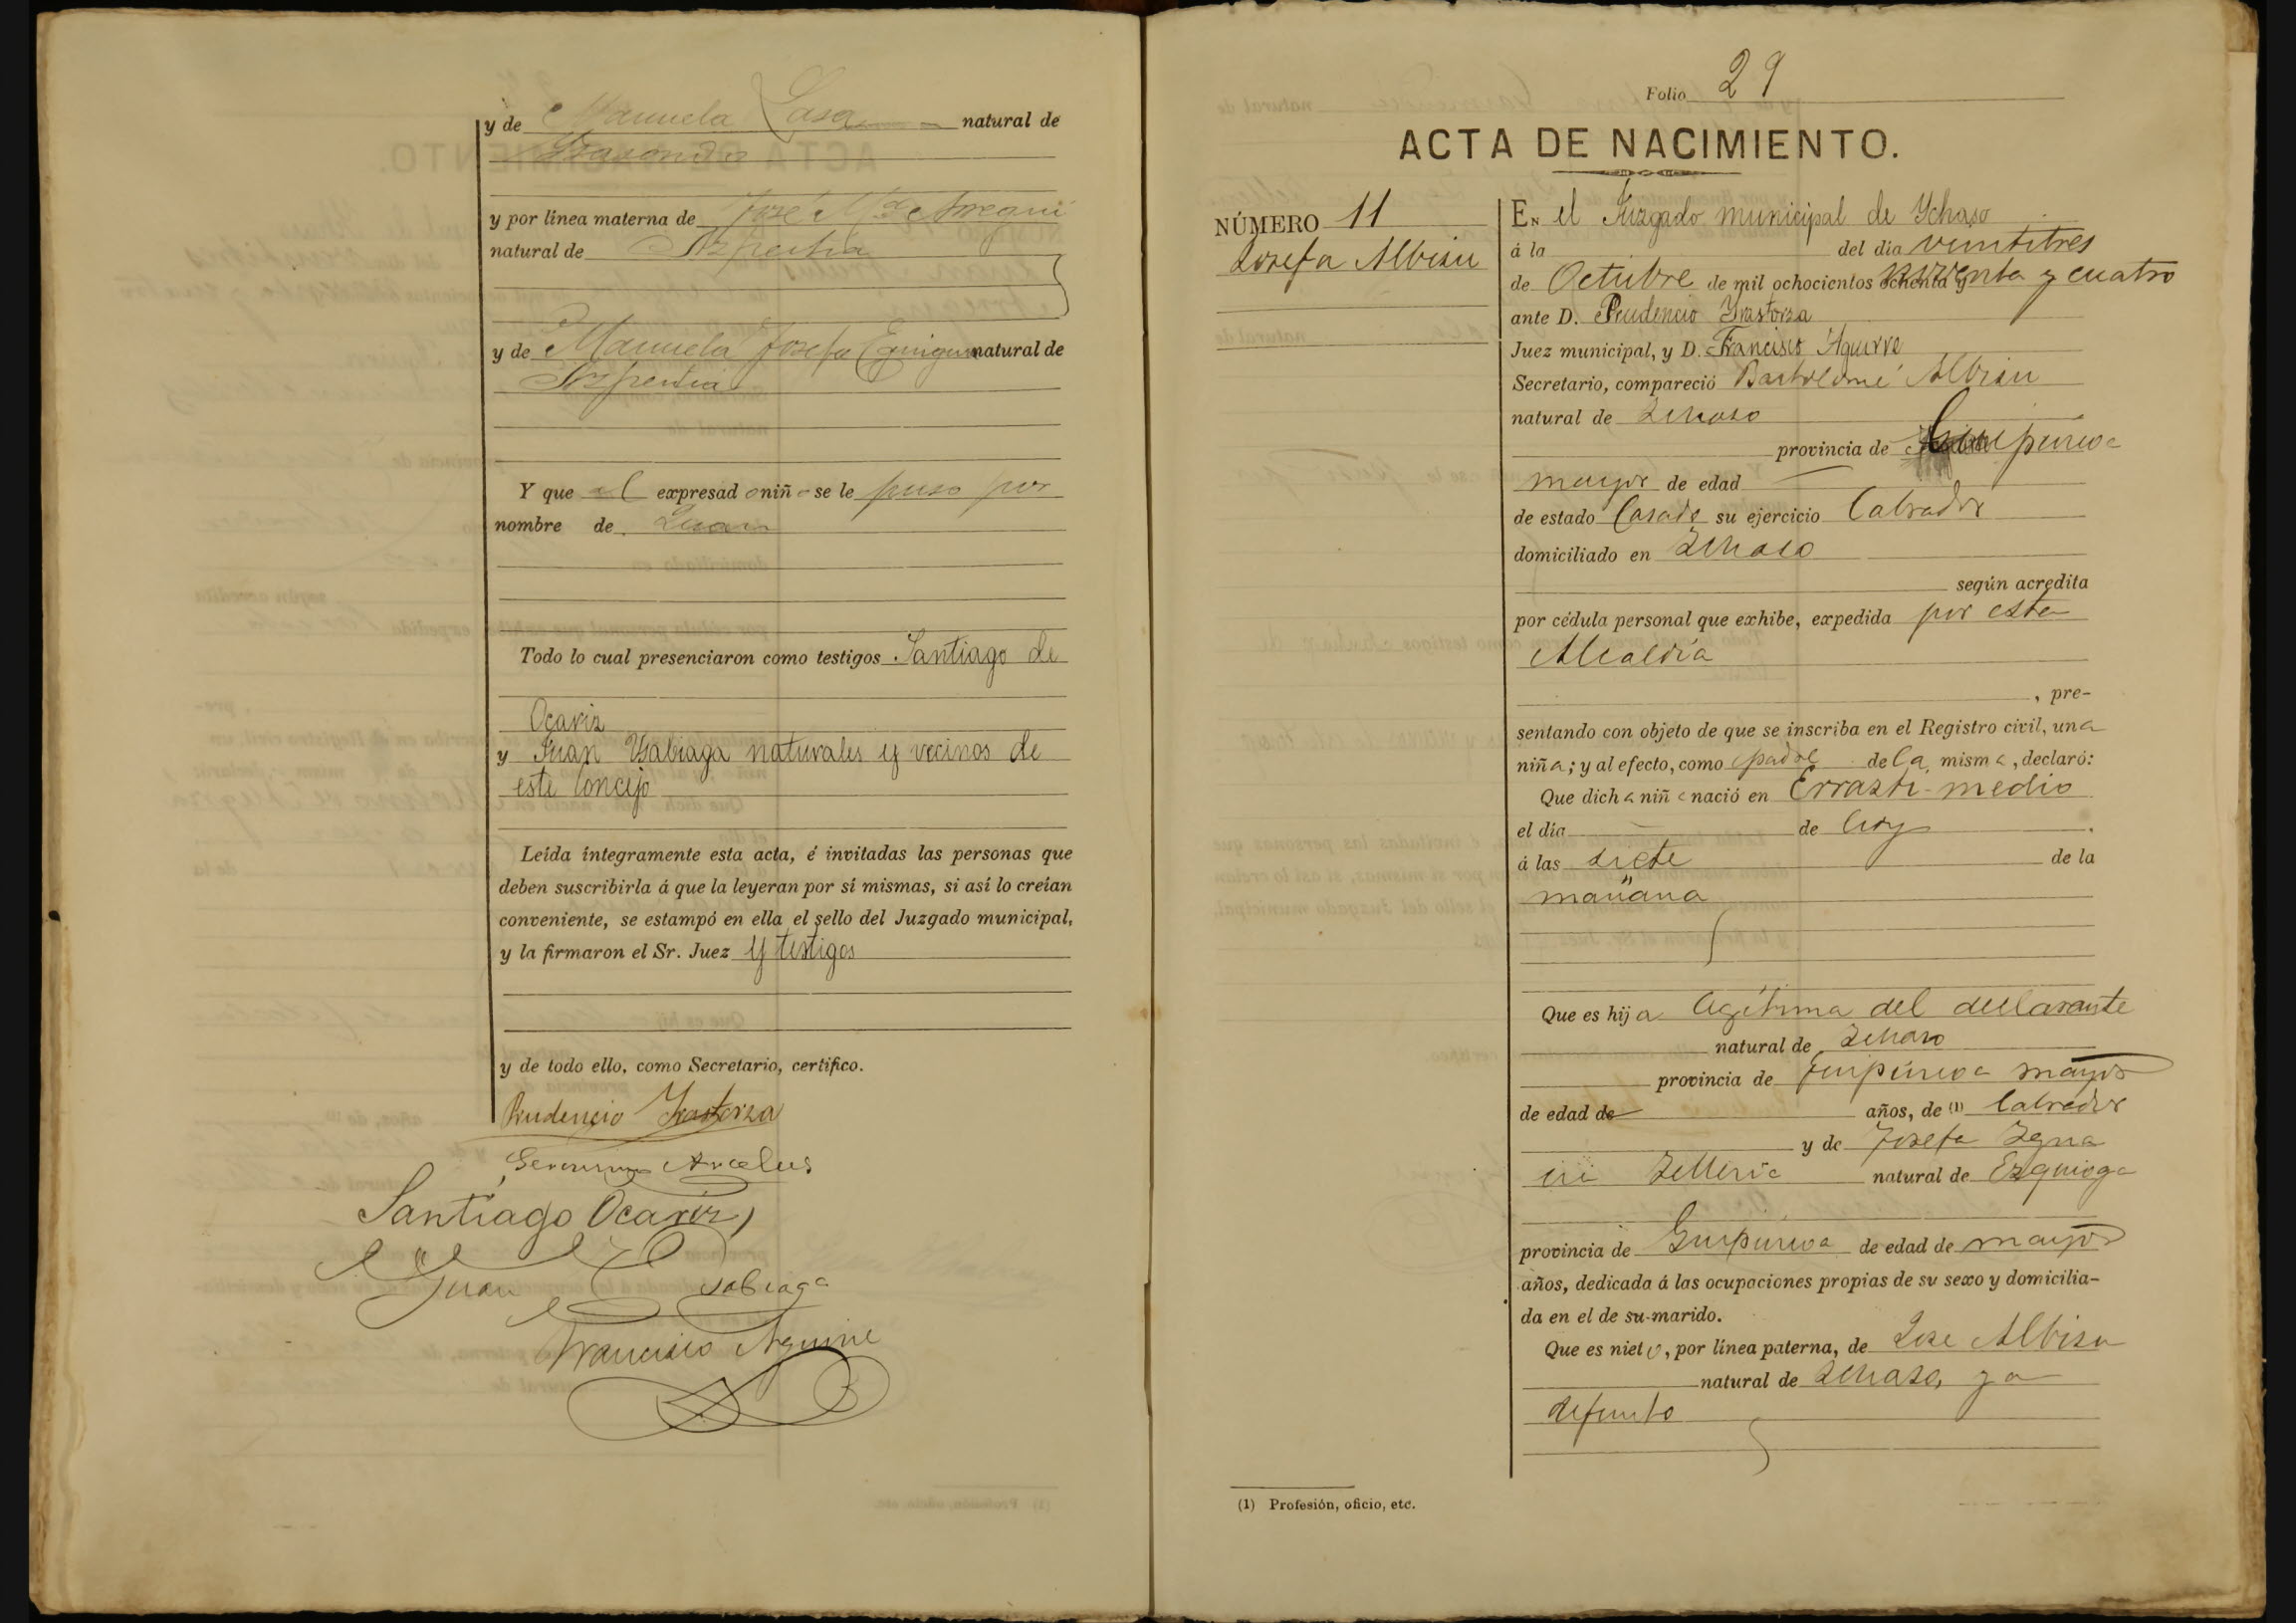 y de Manuela Lasa natural de
y por línea materna de José M.ª Arregui
natural de Azpeitia
y de Manuela Josefa Eguiguren natural de
Azpeitia
Y que el expresado niño se le puso por
nombre de Juan
Todo lo cual presenciaron como testigos Santiago de
Ocariz
y Juan Ysabiaga naturales y vecinos de
este Concejo
Leída íntegramente esta acta, é invitadas las personas que
deben suscribirla á que la leyeran por sí mismas, si así lo creían
conveniente, se estampó en ella el sello del Juzgado municipal,
y la firmaron el Sr. Juez y testigos
y de todo ello, como Secretario, certifico.
Prudencio Yrastorza
Arcelus
Santiago Ocariz
Juan Ysabiaga
Francisco Aguirre
Folio 29
ACTA DE NACIMIENTO.
NÚMERO 11
Josefa Albisu
En el Juzgado municipal de Ychaso
á la del dia veintitres
de Octubre de mil ochocientos noventa y cuatro
ante D. Prudencio Yrastorza
Juez municipal, y D. Francisco Aguirre
Secretario, compareció Bartolomé Albisu
natural de Ichaso
provincia de Guipuzcoa
mayor de edad
de estado Casado su ejercicio labrador
domiciliado en Ichaso
según acredita
por cédula personal que exhibe, expedida por esta
Alcaldía
, pre-
sentando con objeto de que se inscriba en el Registro civil, una
niña; y al efecto, como padre de la misma, declaró:
Que dicha niña nació en Errasti-medio
el día de hoy
á las siete de la
mañana
Que es hija legítima del declarante
natural de Ichaso
provincia de Guipúzcoa mayor
de edad de años, de (1) labrador
y de Josefa Igna
cia Telleria natural de Ezquioga
provincia de Guipuzcoa de edad de mayor
años, dedicada á las ocupaciones propias de su sexo y domicilia-
da en el de su marido.
Que es nieto, por línea paterna, de José Albisu
natural de Ichaso, ya
defunto
(1) Profesión, oficio, etc.